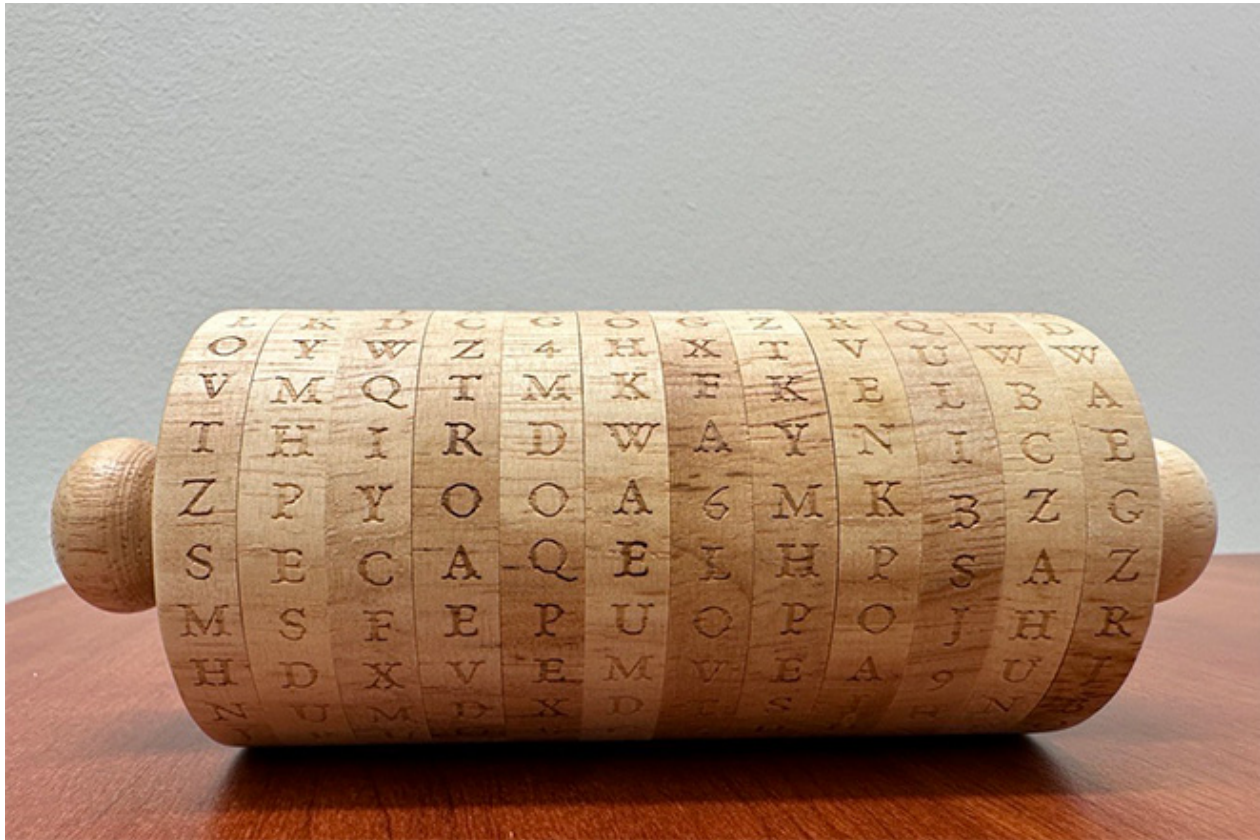 K D C G O G Z R Q V D
O Y W Z 4 H X T V U W W
V M Q T M K F K E L B A
T H I R D W A Y N I C E
Z P Y O O A 6 M K B Z G
S E C A Q E L H P S A Z
M S F E P U O P O J H R
H D X V E M V E A 9 U
N U M D X D S N